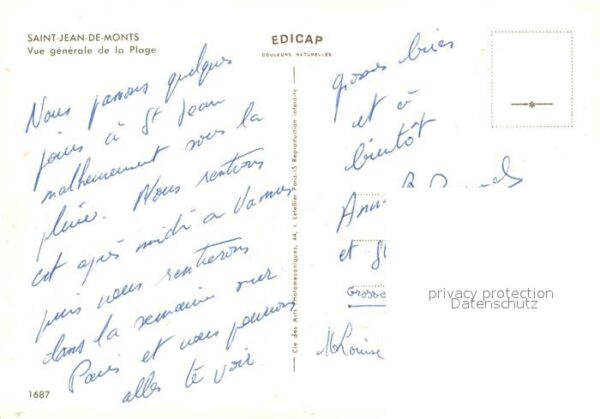 SAINT-JEAN-DE-MONTS
Vue générale de la Plage.
EDICAP
COULEURS NATURELLES
Nous passons quelques
jours à St Jean
malheureusement sous la
pluie. Nous rentrons
cet après midi a Vannes
puis nous rentrerons
dans la semaine sur
Paris et nous pourrons
alles te voir
1687
Cie des Arts Photomécaniques, 44, r. Letellier Paris-15 Reproduction interdite
grosses bises
et à
bientôt
et
Grosse
M Louise
privacy protection
Datenschutz